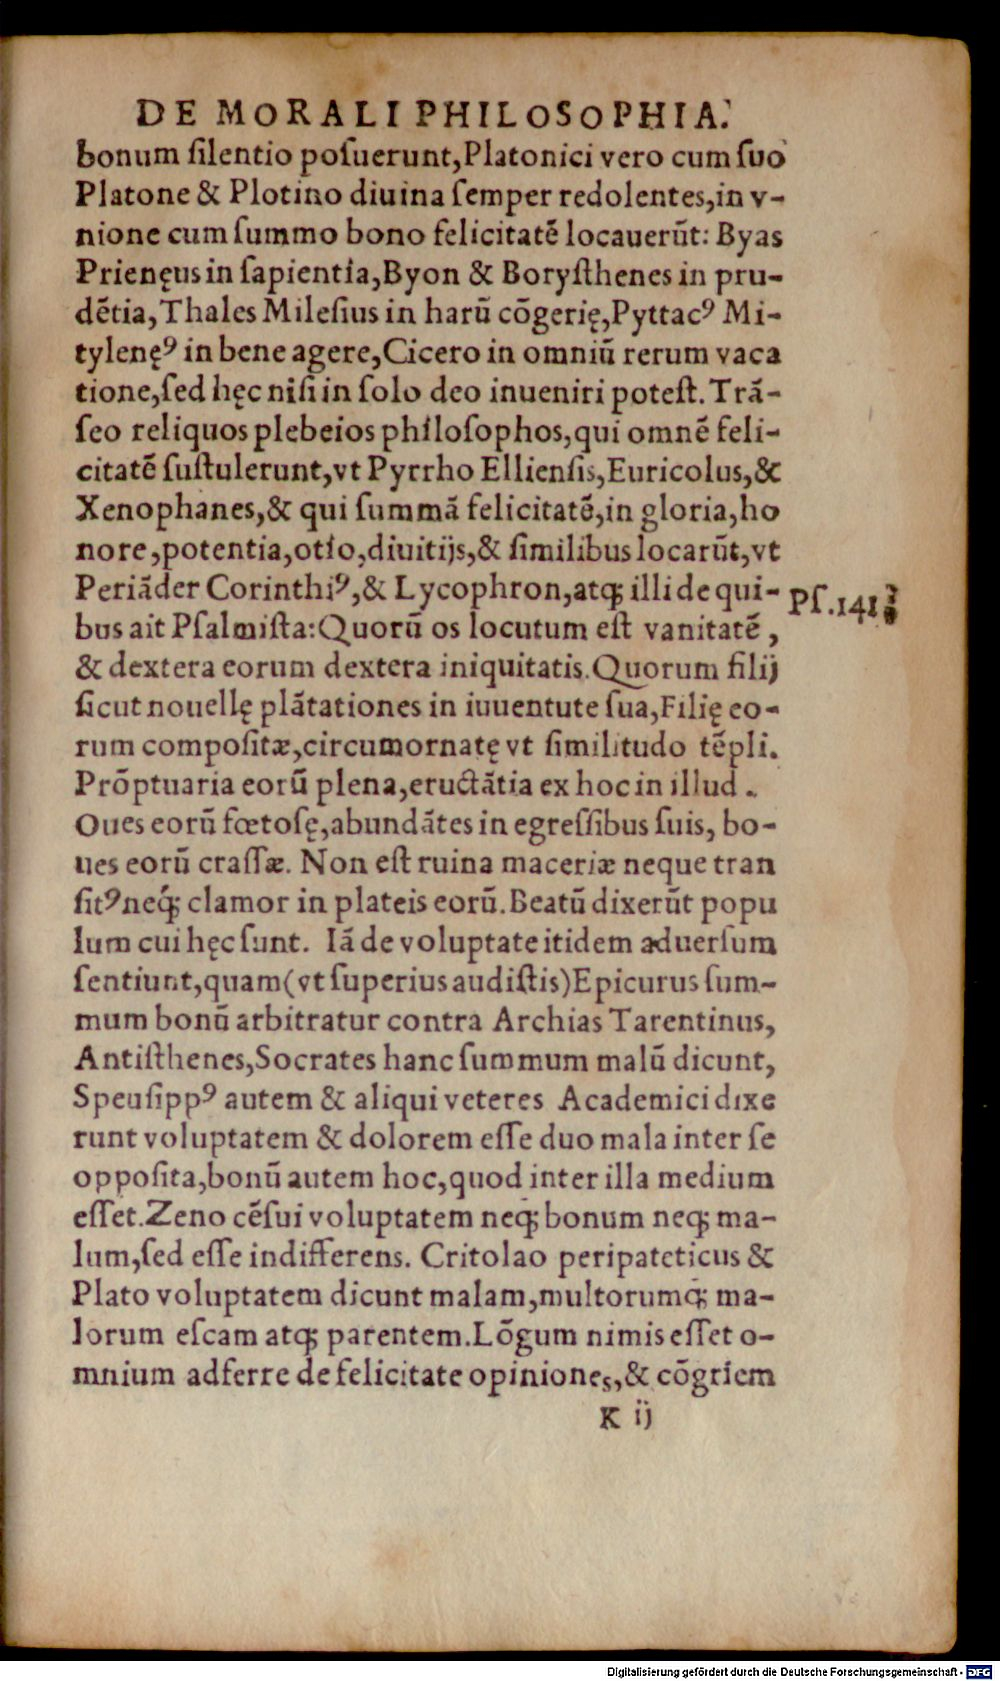 DE MORALI PHILOSOPHIA.
bonum ſilentio poſuerunt,Platonici vero cum ſuo
Platone & Plotino diuina ſemper redolentes,in v-
nione cum ſummo bono felicitatē locauerūt: Byas
Prienęus in ſapientia,Byon & Boryſthenes in pru-
dētia,Thales Mileſius in harū cōgerię,Pyttacꝰ Mi-
tylenęꝰ in bene agere,Cicero in omniū rerum vaca
tione,ſed hęc niſi in ſolo deo inueniri poteſt. Trā-
ſeo reliquos plebeios philoſophos,qui omnē feli-
citatē ſuſtulerunt,vt Pyrrho Ellienſis,Euricolus,&
Xenophanes,& qui ſummā felicitatē,in gloria,ho
nore,potentia,otio,diuitijs,& ſimilibus locarūt,vt
Periāder Corinthiꝰ,& Lycophron,atqꝫ illi de qui-
bus ait Pſalmiſta:Quorū os locutum eſt vanitatē,
& dextera eorum dextera iniquitatis.Quorum filij
ſicut nouellę plātationes in iuuentute ſua,Filię eo-
rum compoſitæ,circumornatę vt ſimilitudo tēpli.
Prōptuaria eorū plena,eructātia ex hoc in illud.
Oues eorū fœtoſę,abundātes in egreſſibus ſuis, bo-
ues eorū craſſæ. Non eſt ruina maceriæ neque tran
ſitꝰ neqꝫ clamor in plateis eorū.Beatū dixerūt popu
lum cui hęc ſunt. Iā de voluptate itidem aduerſum
ſentiunt,quam(vt ſuperius audiſtis)Epicurus ſum-
mum bonū arbitratur contra Archias Tarentinus,
Antiſthenes,Socrates hanc ſummum malū dicunt,
Speuſippꝰ autem & aliqui veteres Academici dixe
runt voluptatem & dolorem eſſe duo mala inter ſe
oppoſita,bonū autem hoc,quod inter illa medium
eſſet.Zeno cēſui voluptatem neqꝫ bonum neqꝫ ma-
lum,ſed eſſe indifferens. Critolao peripateticus &
Plato voluptatem dicunt malam,multorumqꝫ ma-
lorum eſcam atqꝫ parentem.Lōgum nimis eſſet o-
mnium adferre de felicitate opiniones,& cōgriem
K ij
Pſ.141
Digitalisierung gefördert durch die Deutsche Forschungsgemeinschaft - DFG